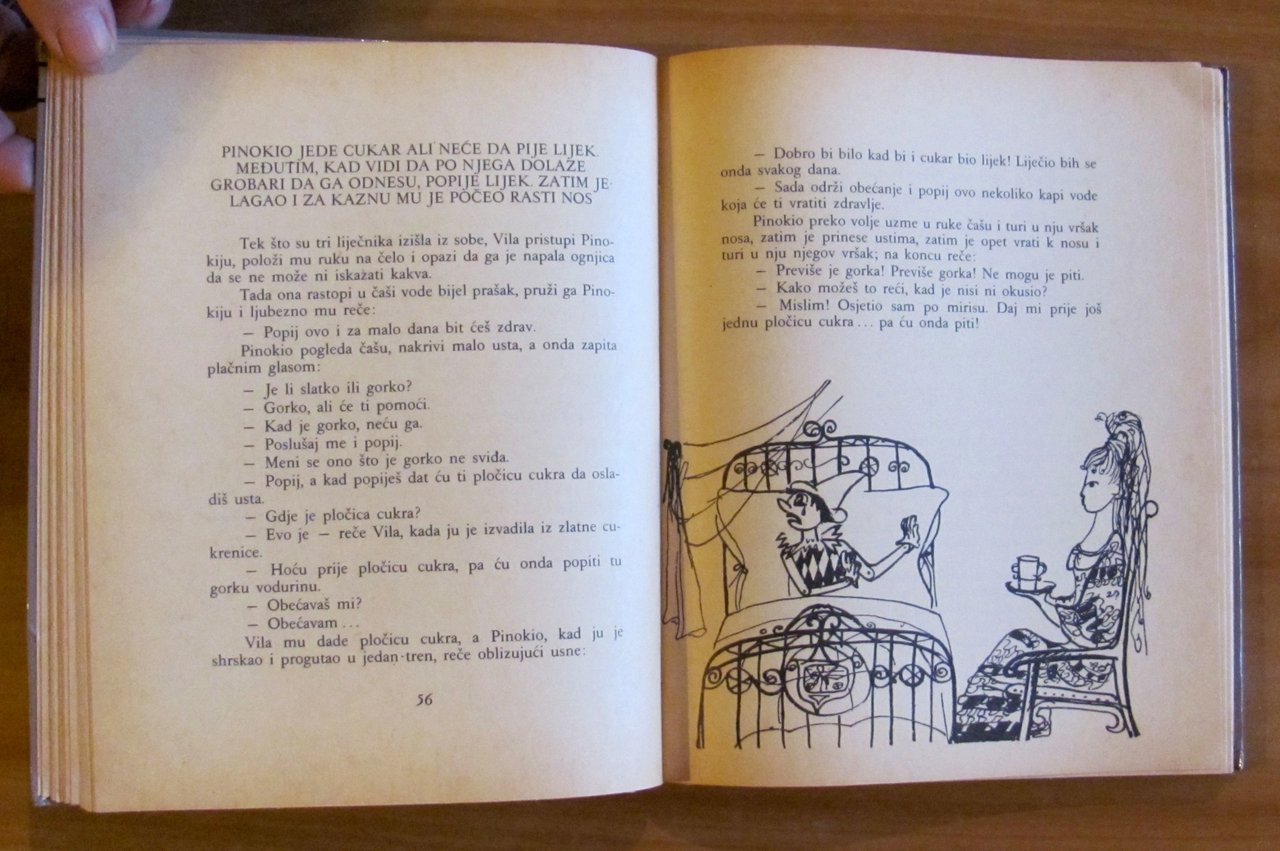 PINOKIO JEDE CUKAR ALI NEĆE DA PIJE LIJEK.
MEĐUTIM, KAD VIDI DA PO NJEGA DOLAZE
GROBARI DA GA ODNESU, POPIJE LIJEK. ZATIM JE
LAGAO I ZA KAZNU MU JE POČEO RASTI NOS
Tek što su tri liječnika izišla iz sobe, Vila pristupi Pino-
kiju, položi mu ruku na čelo i opazi da ga je napala ognjica
da se ne može ni iskazati kakva.
Tada ona rastopi u čaši vode bijel prašak, pruži ga Pino-
kiju i ljubezno mu reče:
— Popij ovo i za malo dana bit ćeš zdrav.
Pinokio pogleda čašu, nakrivi malo usta, a onda zapita
plačnim glasom:
— Je li slatko ili gorko?
— Gorko, ali će ti pomoći.
— Kad je gorko, neću ga.
— Poslušaj me i popij.
— Meni se ono što je gorko ne sviđa.
— Popij, a kad popiješ dat ću ti pločicu cukra da osla-
diš usta.
— Gdje je pločica cukra?
— Evo je — reče Vila, kada ju je izvadila iz zlatne cu-
krenice.
— Hoću prije pločicu cukra, pa ću onda popiti tu
gorku vodurinu.
— Obećavaš mi?
— Obećavam ...
Vila mu dade pločicu cukra, a Pinokio, kad ju je
shrskao i progutao u jedan·tren, reče oblizujući usne:
56
— Dobro bi bilo kad bi i cukar bio lijek! Liječio bih se
onda svakog dana.
— Sada održi obećanje i popij ovo nekoliko kapi vode
koja će ti vratiti zdravlje.
Pinokio preko volje uzme u ruke čašu i turi u nju vršak
nosa, zatim je prinese ustima, zatim je opet vrati k nosu i
turi u nju njegov vršak; na koncu reče:
— Previše je gorka! Previše gorka! Ne mogu je piti.
— Kako možeš to reći, kad je nisi ni okusio?
— Mislim! Osjetio sam po mirisu. Daj mi prije još
jednu pločicu cukra ... pa ću onda piti!